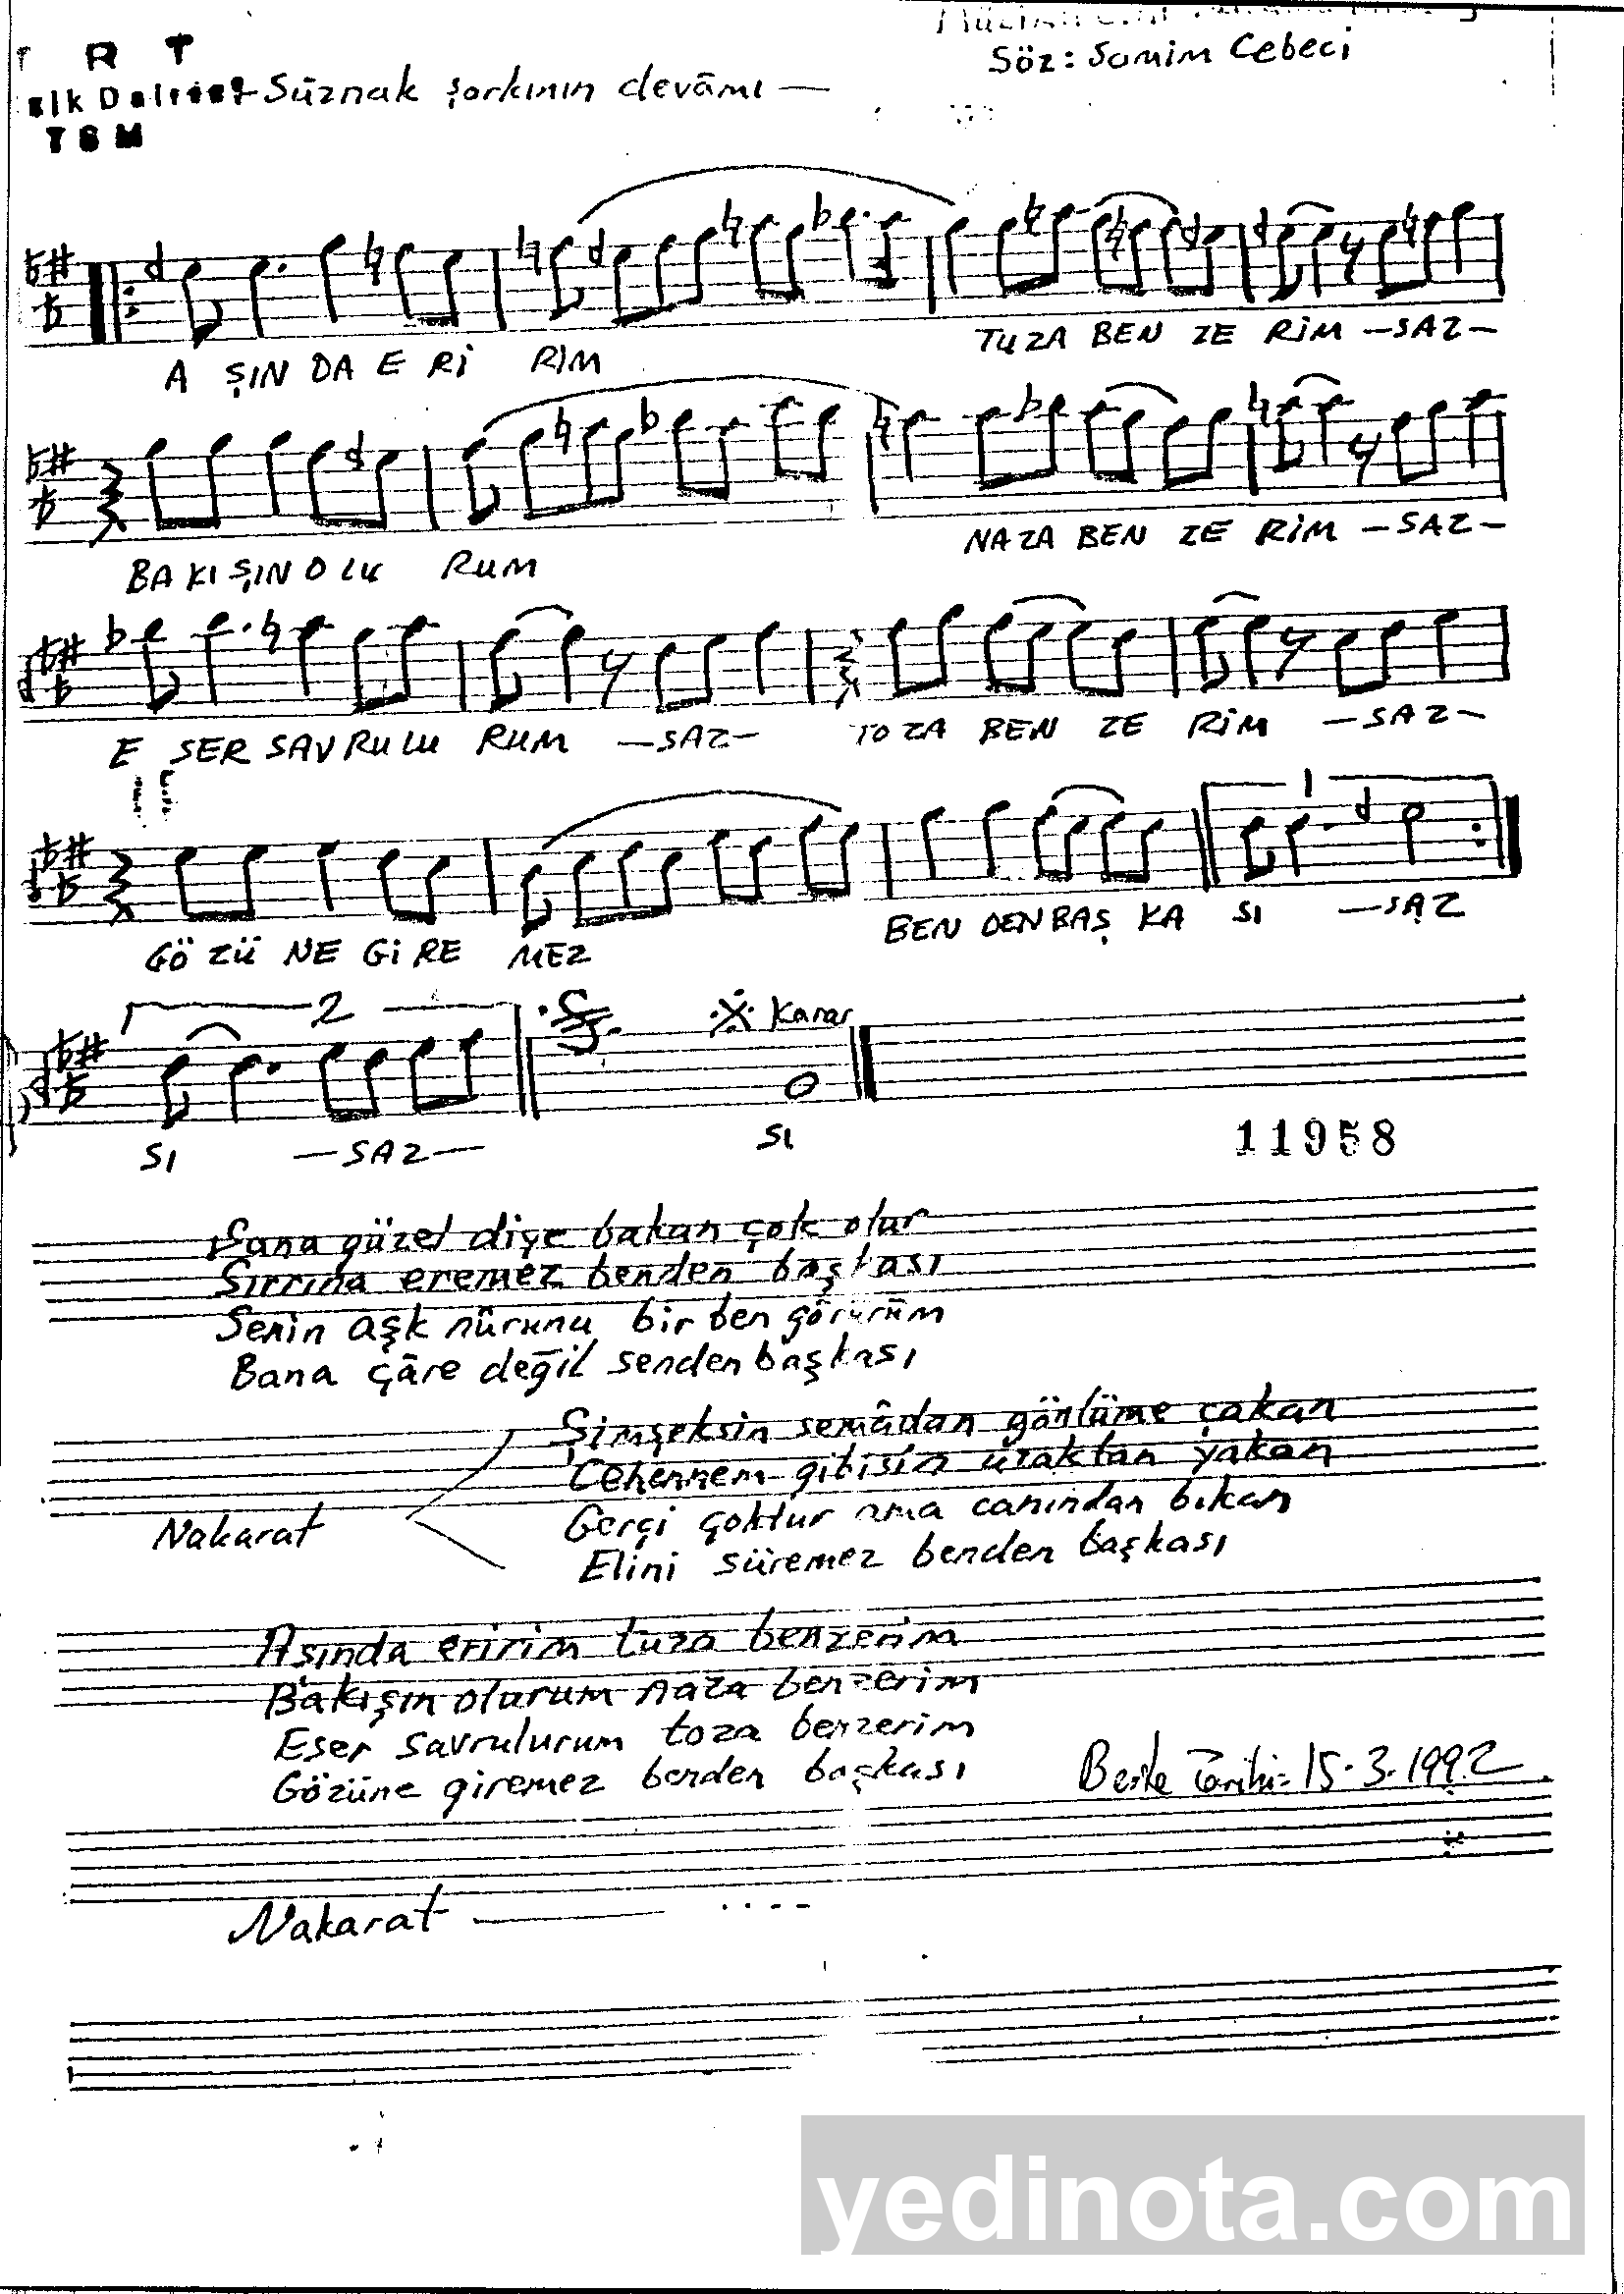 T R T
TSM
Sûznak şarkının devâmı —
Söz: Samim Cebeci
A ŞIN DA E Rİ RİM TUZA BEN ZE RİM —SAZ—
BA KI ŞIN O LU RUM NAZA BEN ZE RİM —SAZ—
E SER SAVRULU RUM —SAZ— TOZA BEN ZE RİM —SAZ—
1
GÖ ZÜ NE Gİ RE MEZ BEN DEN BAŞ KA SI —SAZ
2 Karar
SI —SAZ— SI
11958
Sana güzel diye bakan çok olur
Sırrına eremez benden başkası
Senin aşk nûrunu bir ben görürüm
Bana çâre değil senden başkası
Şimşeksin semâdan gönlüme çakan
Cehennem gibisin uzaktan yakan
Nakarat
Gerçi çoktur ama canından bıkan
Elini süremez benden başkası
Aşında eririm tuza benzerim
Bakışın olurum naza benzerim
Eser savrulurum toza benzerim
Gözüne giremez benden başkası
Beste Tarihi: 15.3.1992
Nakarat — ....
yedinota.com